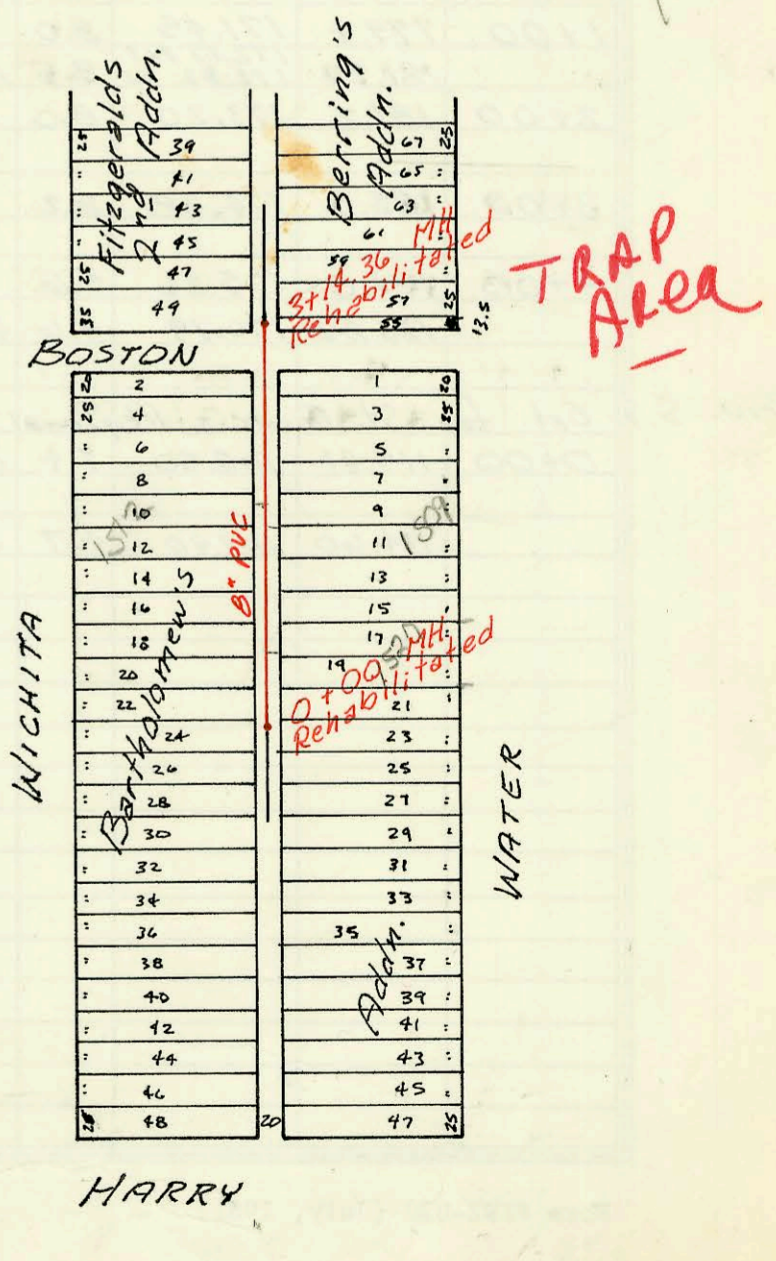 Fitzgeralds
2nd Addn.
25 39
" 41
" 43
" 45
25 47
35 49
Berring's
Addn.
67 25
65 "
63 "
61 "
59 "
57 25
55
13.5
3+14.36 MH
Rehabilitated
TRAP
Area
BOSTON
20 2
25 4
" 6
" 8
" 10
" 12
" 14
" 16
" 18
" 20
" 22
" 24
" 26
" 28
" 30
" 32
" 34
" 36
" 38
" 40
" 42
" 44
" 46
25 48
Bartholomew's
Addn.
8" PVC
1 20
3 25
5 "
7 "
9 "
11 "
13 "
15 "
17 "
19 "
21 "
23 "
25 "
27 "
29 "
31 "
33 "
35 "
37 "
39 "
41 "
43 "
45 "
47 25
1509
0+00 MH
Rehabilitated
20
WICHITA
WATER
HARRY